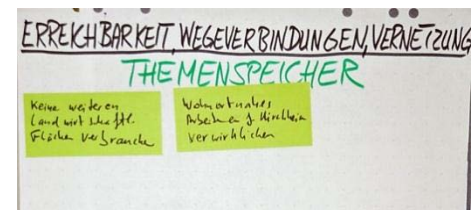 ERREICHBARKEIT, WEGEVERBINDUNGEN, VERNETZUNG
THEMENSPEICHER
Keine weiteren
Landwirtschaftl.
Flächen verbrauchen
Wohnortnahes
Arbeiten f. Kirchheim
verwirklichen